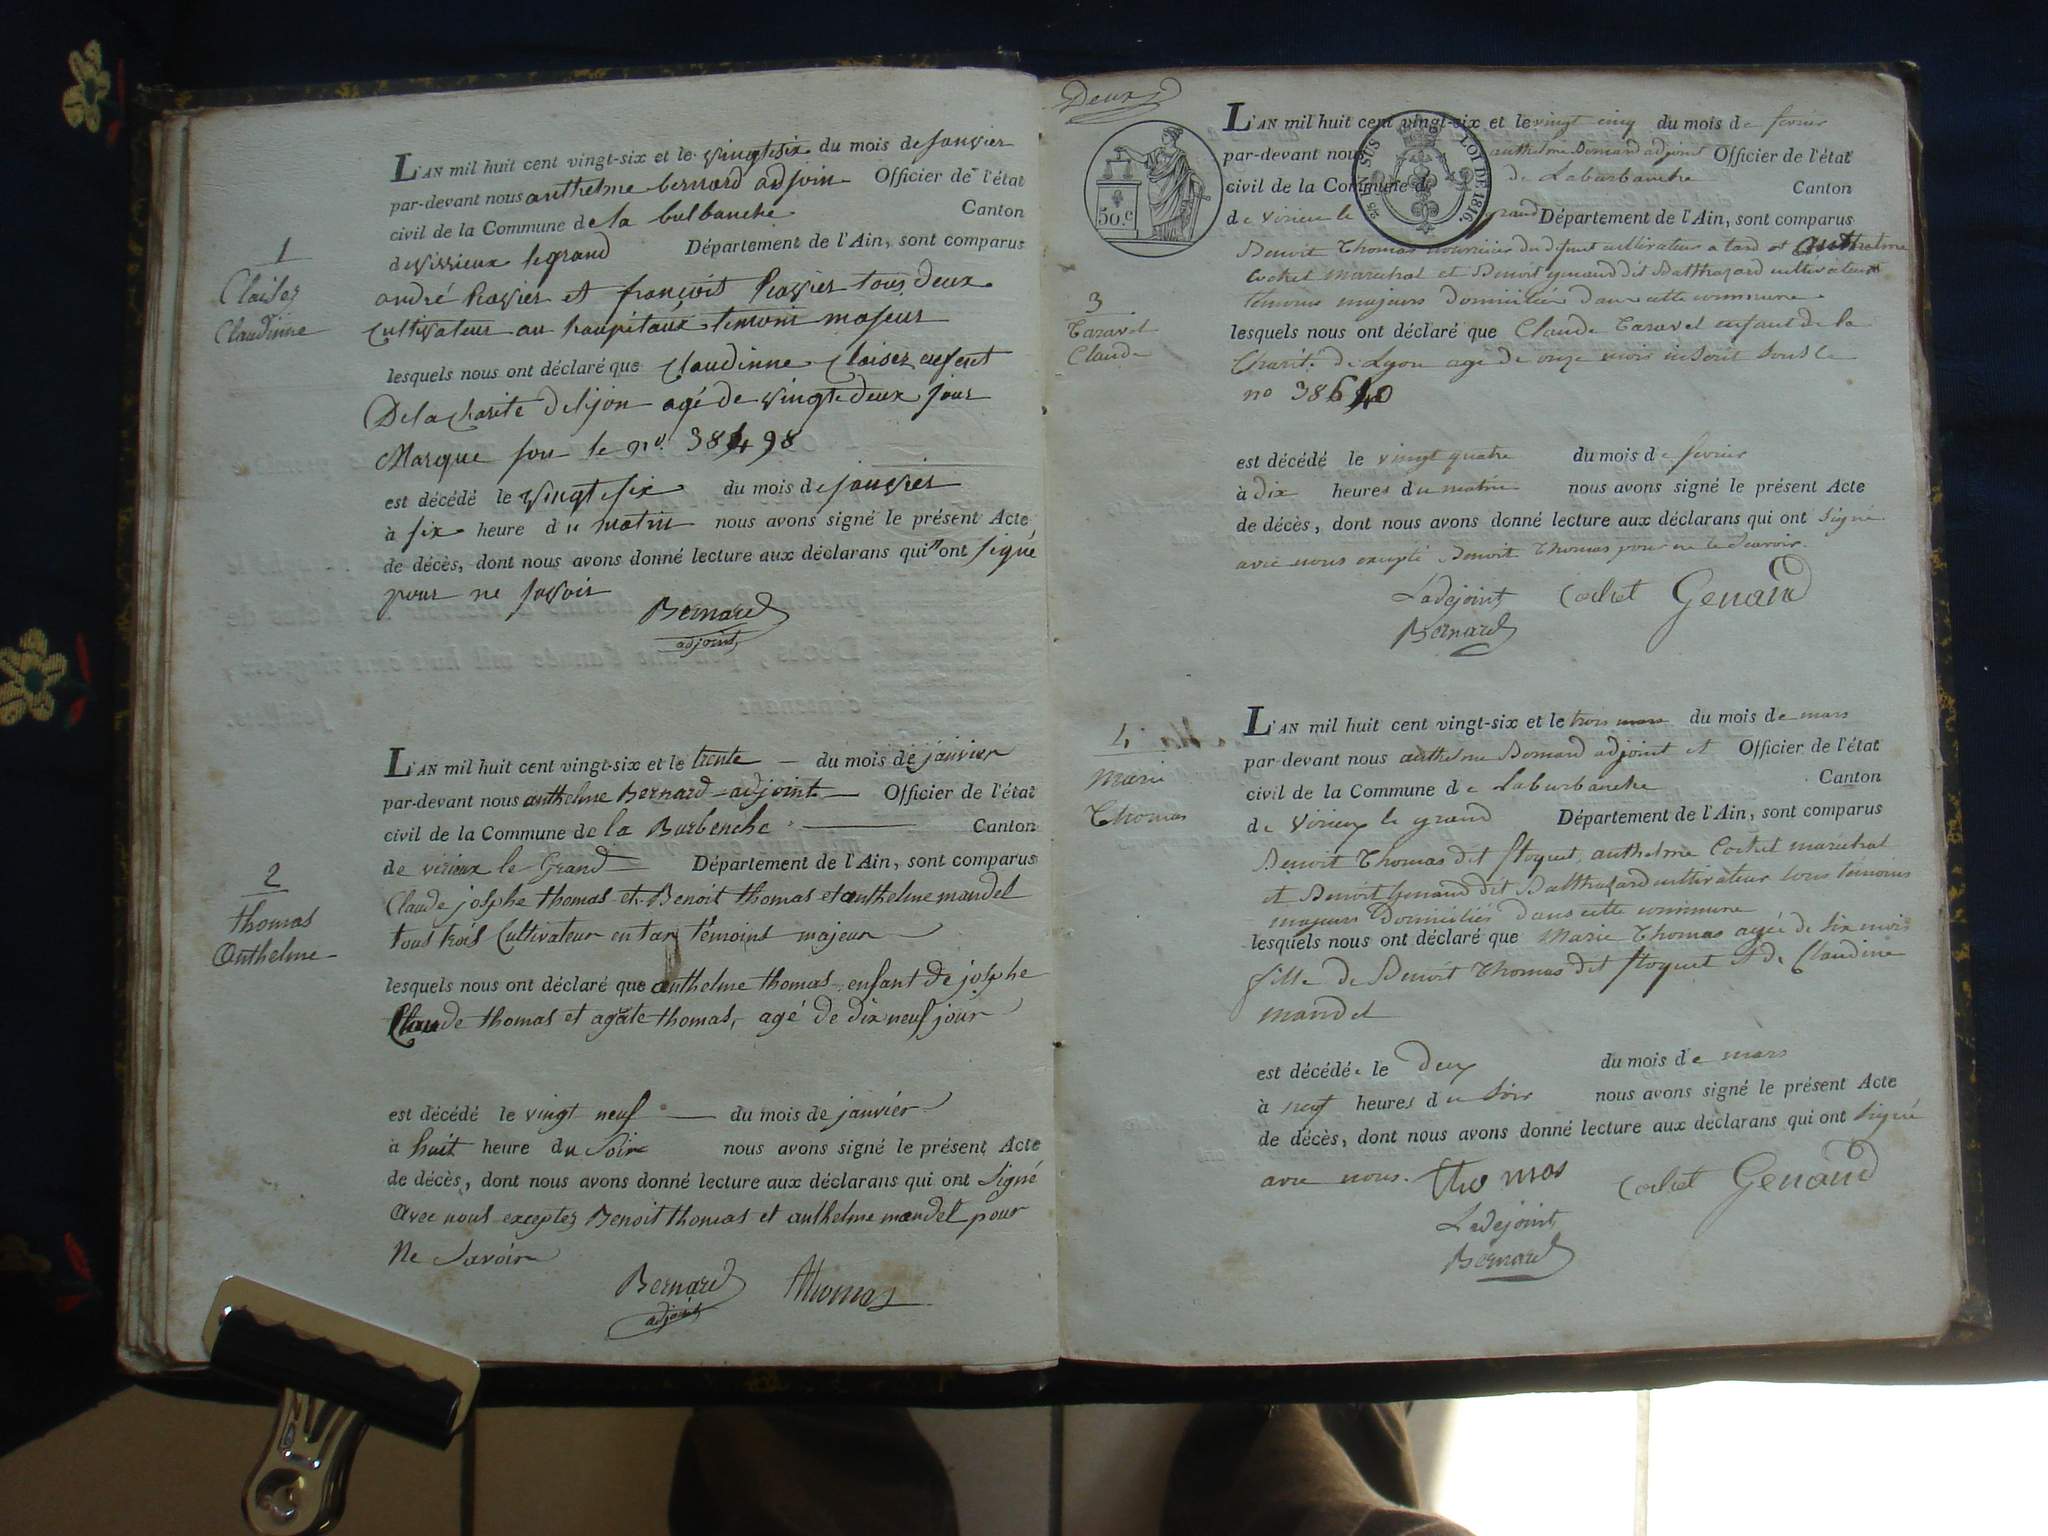 1
Claisez
Claudinne
L'AN mil huit cent vingt-six et le vingt six du mois de janvier
par-devant nous anthelme bernard adjoin Officier de l'état
civil de la Commune de la bulbanche Canton
de virrieux legrand Département de l'Ain, sont comparus
andré et françoit tous deux
Cultivateur au témoins majeur
lesquels nous ont déclaré que Claudinne Claisez enfent
De la charite de lyon agé de vingt deux jour
Marque sou le no. 38498
est décédé le vingt six du mois de janvier
à six heure du matin nous avons signé le présent Acte
de décès, dont nous avons donné lecture aux déclarans qui n'ont signé
pour ne savoir
Bernard
adjoint
2
thomas
Anthelme
L'AN mil huit cent vingt-six et le trente du mois de janvier
par-devant nous anthelme Bernard adjoint Officier de l'état
civil de la Commune de la Burbenche Canton
de virieux le Grand Département de l'Ain, sont comparus
Claude josphe thomas et Benoit thomas et anthelme mandel
tous trois Cultivateur en tar témoins majeur
lesquels nous ont déclaré que anthelme thomas enfant de josphe
Claude thomas et agate thomas, agé de dix neuf jour
est décédé le vingt neuf du mois de janvier
à huit heure du Soir nous avons signé le présent Acte
de décès, dont nous avons donné lecture aux déclarans qui ont Signé
avec nous exceptez Benoit thomas et anthelme mandel pour
Ne Savoir
Bernard Thomas
adjoint
Deux
50.c
LOI DE 1816.
3
Taravel
Claude
L'AN mil huit cent vingt-six et le vingt cinq du mois de fevrier
par-devant nous anthelme Bernard adjoint Officier de l'état
civil de la Commune de Laburbanche Canton
de virieu le grand Département de l'Ain, sont comparus
Benoit Thomas nourricier du défunt cultivateur a tard et Anthelme
Cochet marechal et Benoit genaud dit Balthazard cultivateur
temoins majeurs domiciliés dans cette commune
lesquels nous ont déclaré que Claude Taravel enfant de la
Charité de Lyon age de onze mois inscrit sous le
no 38640
est décédé le vingt quatre du mois de fevrier
à dix heures du matin nous avons signé le présent Acte
de décès, dont nous avons donné lecture aux déclarans qui ont signé
avec nous excepté Benoit Thomas pour ne le savoir.
L'adejoint Cochet Genaud
Bernard
4
Marie
Thomas
L'AN mil huit cent vingt-six et le trois mars du mois de mars
par-devant nous anthelme Bernard adjoint et Officier de l'état
civil de la Commune de Laburbanche Canton
de Virieux le grand Département de l'Ain, sont comparus
Benoit Thomas dit floquet, anthelme Cochet marechal
et Benoit Genaud dit Balthazard cultivateur tous témoins
majeurs Domiciliés dans cette commune
lesquels nous ont déclaré que Marie Thomas agée de six mois
fille de Benoit Thomas dit floquet et de Claudine
mandel
est décédée le deux du mois de mars
à neuf heures du soir nous avons signé le présent Acte
de décès, dont nous avons donné lecture aux déclarans qui ont signé
avec nous. thomas Cochet Genaud
L'adejoint
Bernard